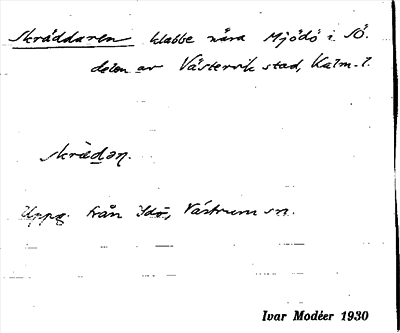 Skräddaren klabbe nära Mjödö i SÖ.
delen av Västervik stad, Kalm. l.
skrädən.
Uppg. från Idö, Västrum sn.
Ivar Modéer 1930